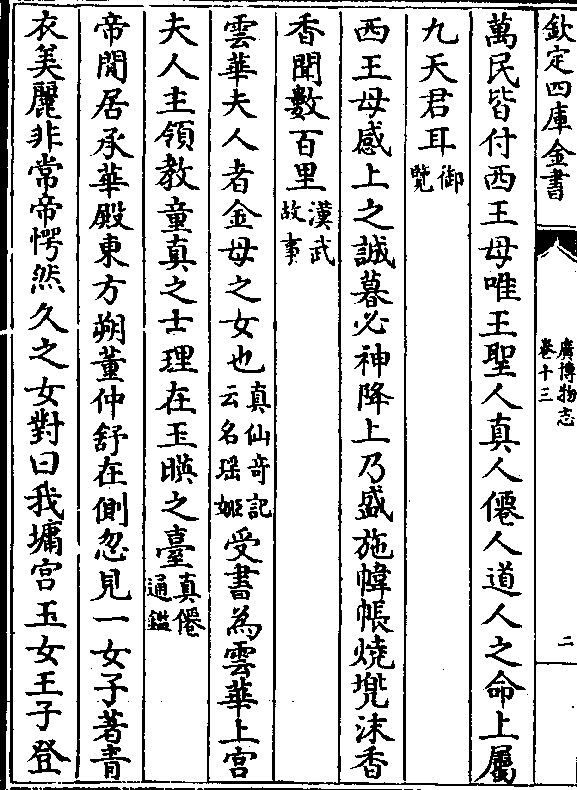 欽定四庫全書
廣博物志
卷十三
二
萬民皆付西王母唯王聖人真人僊人道人之命上屬
九天君耳御覽
西王母感上之誠暮必神降上乃盛施幃帳燒兠沫香
香聞數百里漢武故事
雲華夫人者金母之女也真仙奇記云名瑶姬受書為雲華上宮
夫人主領教童真之士理在玉暎之臺真僊通鑑
帝閒居承華殿東方朔董仲舒在側忽見一女子著青
衣美麗非常帝愕然久之女對曰我墉宮玉女王子登